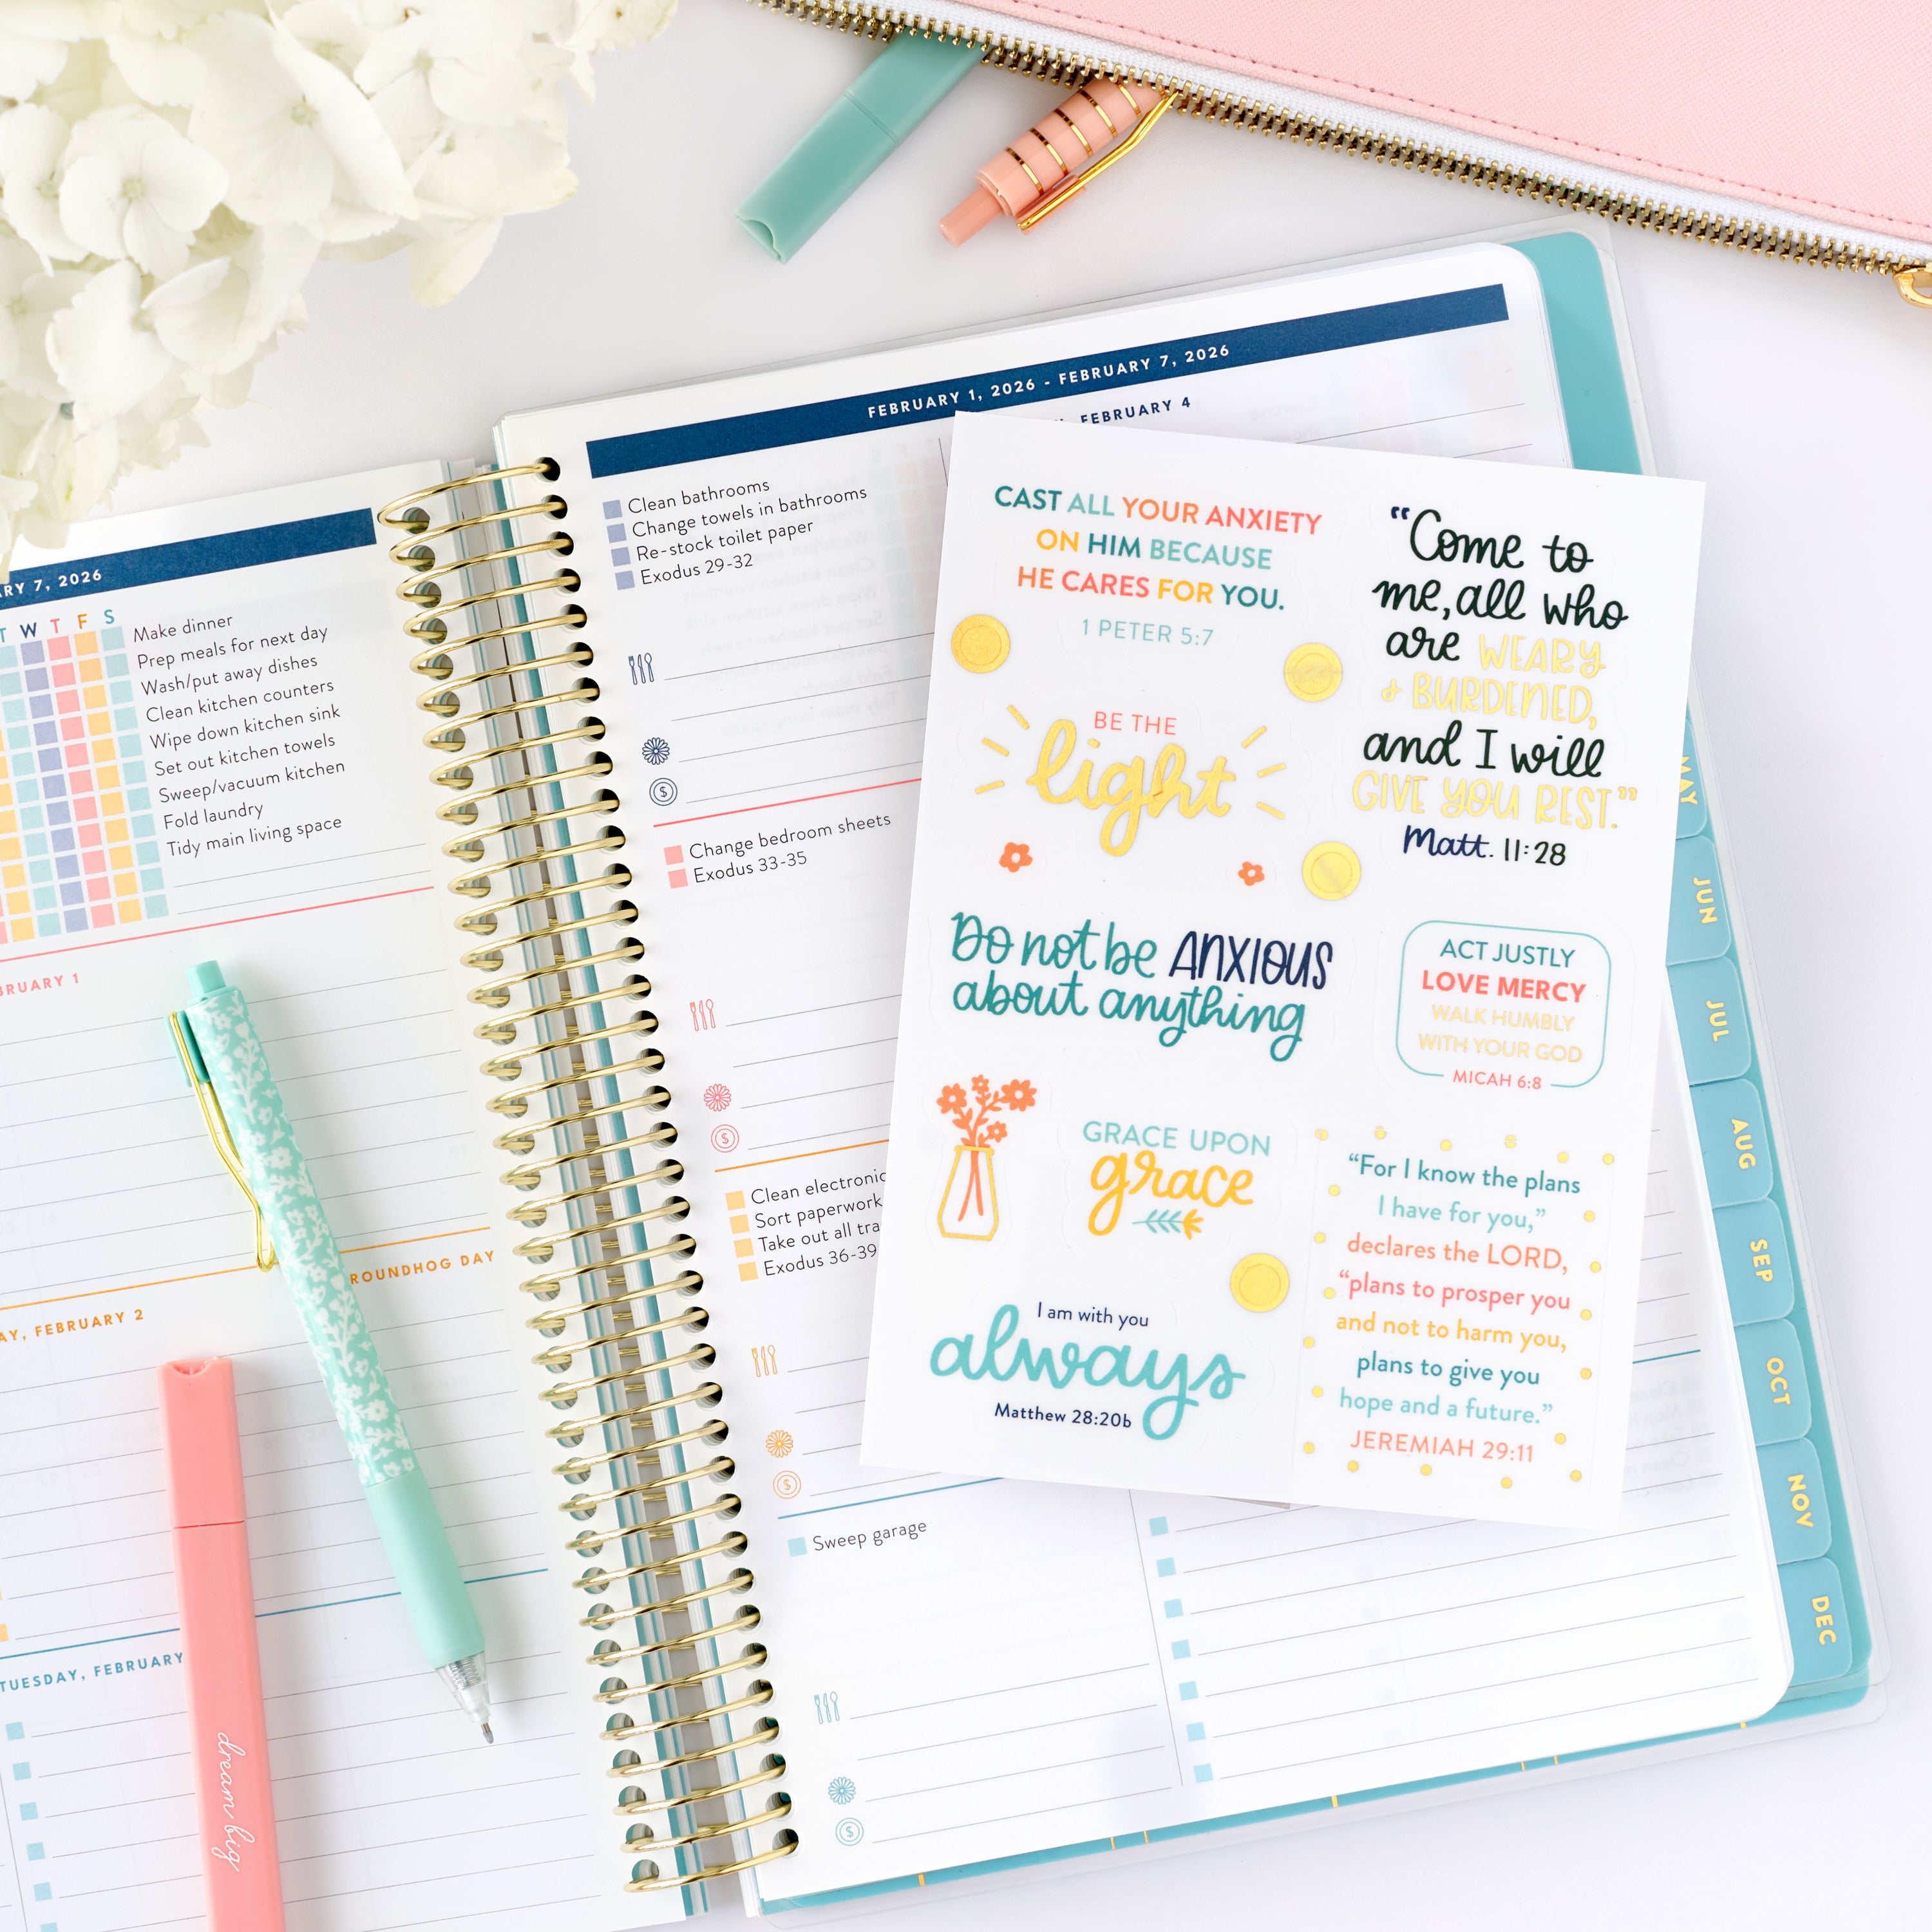 RY 7, 2026
T W T F S
Make dinner
Prep meals for next day
Wash/put away dishes
Clean kitchen counters
Wipe down kitchen sink
Set out kitchen towels
Sweep/vacuum kitchen
Fold laundry
Tidy main living space
BRUARY 1
ROUNDHOG DAY
AY, FEBRUARY 2
TUESDAY, FEBRUARY
dream big
FEBRUARY 1, 2026 - FEBRUARY 7, 2026
FEBRUARY 4
Clean bathrooms
Change towels in bathrooms
Re-stock toilet paper
Exodus 29-32
$
Change bedroom sheets
Exodus 33-35
$
Clean electronic
Sort paperwork
Take out all tra
Exodus 36-39
$
Sweep garage
$
CAST ALL YOUR ANXIETY
ON HIM BECAUSE
HE CARES FOR YOU.
1 PETER 5:7
"Come to
me, all who
are WEARY
& BURDENED,
and I will
GIVE YOU REST."
Matt. 11:28
BE THE
light
Do not be ANXIOUS
about anything
ACT JUSTLY
LOVE MERCY
WALK HUMBLY
WITH YOUR GOD
MICAH 6:8
GRACE UPON
grace
"For I know the plans
I have for you,"
declares the LORD,
"plans to prosper you
and not to harm you,
plans to give you
hope and a future."
JEREMIAH 29:11
I am with you
always
Matthew 28:20b
MAY
JUN
JUL
AUG
SEP
OCT
NOV
DEC